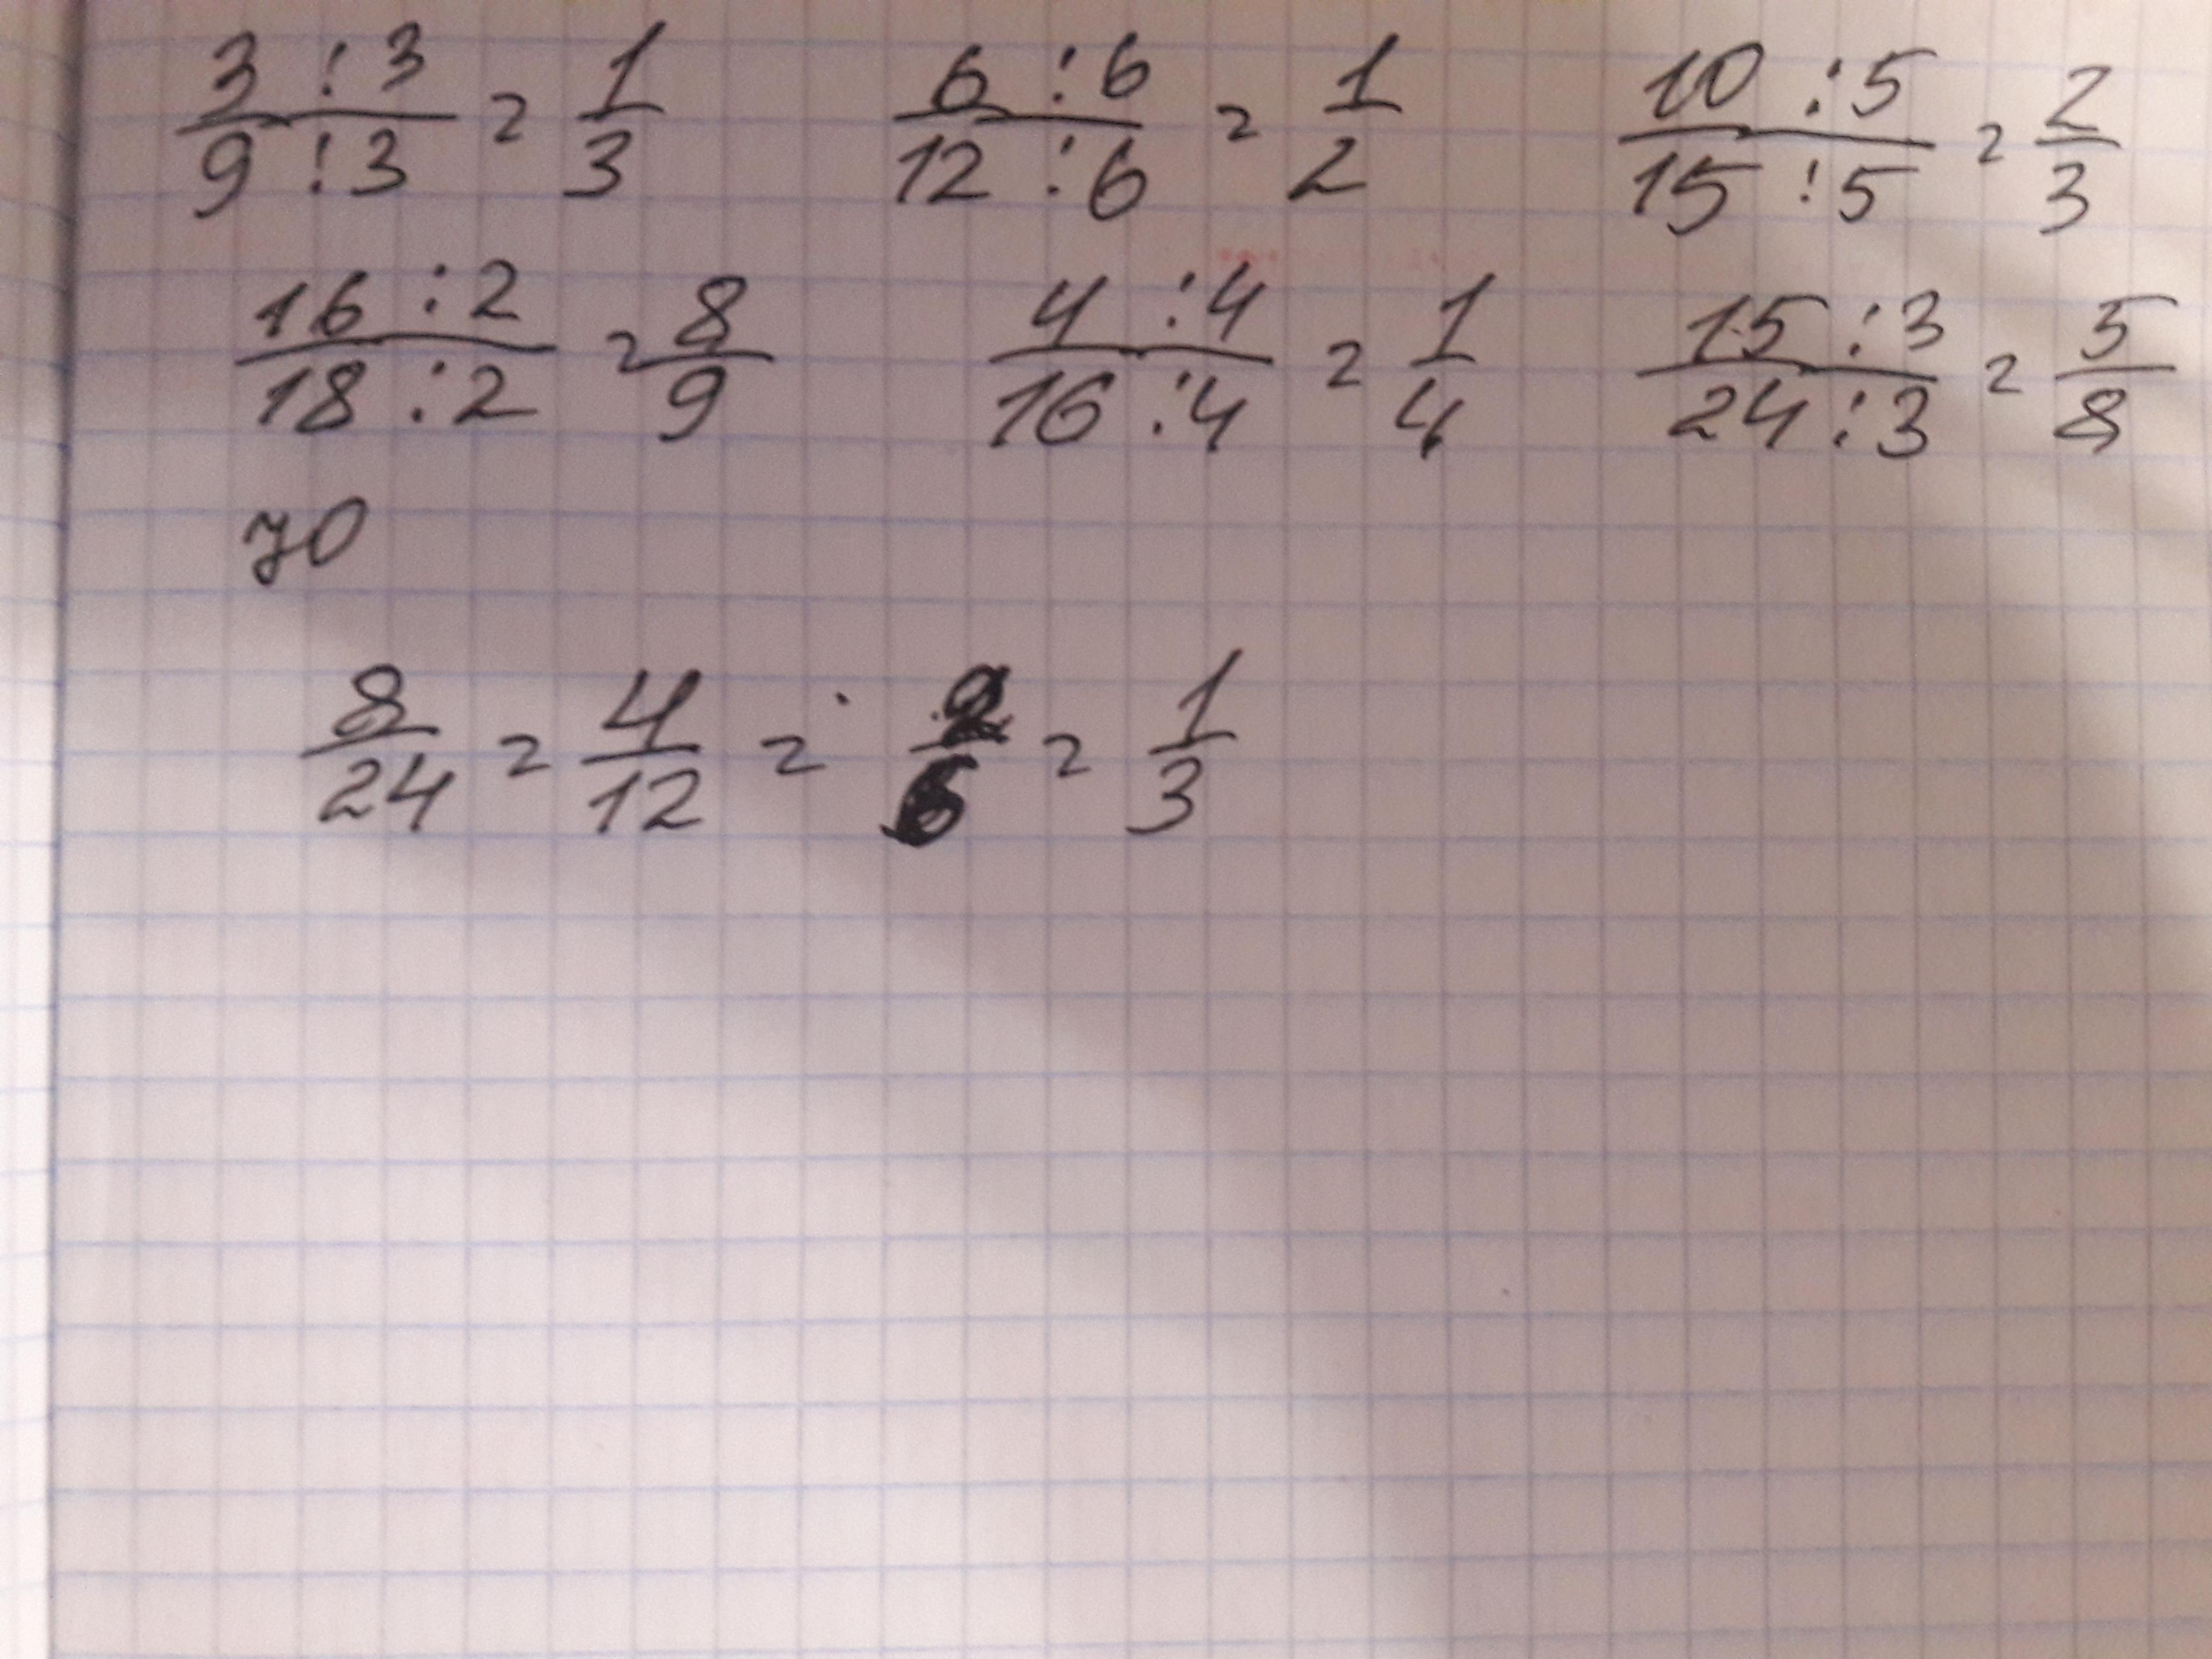 3 :3 / 9 :3 = 1/3 6 :6 / 12 :6 = 1/2 10 :5 / 15 :5 = 2/3
16 :2 / 18 :2 = 8/9 4 :4 / 16 :4 = 1/4 15 :3 / 24 :3 = 5/8
70
8/24 = 4/12 = 2/6 = 1/3